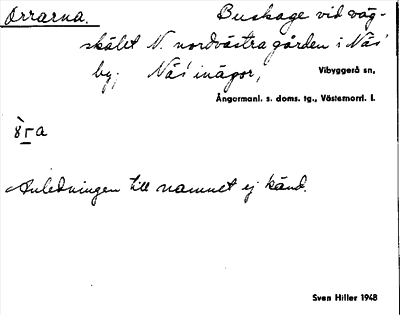 Orrarna. Buskage vid väg-
skälet N. nordvästra gården i Näs
by; Näs inägor, Vibyggerå sn,
Ångermanl. s. doms. tg., Västernorrl. l.
Anledningen till namnet ej känd.
Sven Hiller 1948